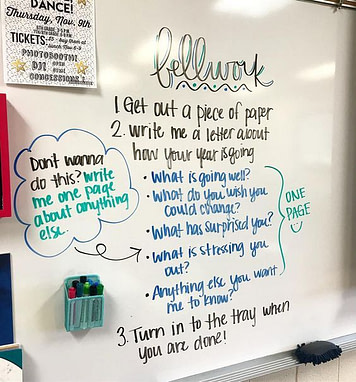 DANCE!
Thursday, Nov. 9th
TICKETS:
PHOTOBOOTH
DJ
CONCESSIONS
bellwork
1. Get out a piece of paper
2. Write me a letter about
how your year is going
• What is going well?
• What do you wish you
could change?
• What has surprised you?
• What is stressing you
out?
• Anything else you want
me to know?
ONE
PAGE
3. Turn in to the tray when
you are done!
Don't wanna
do this? write
me one page
about anything
else.